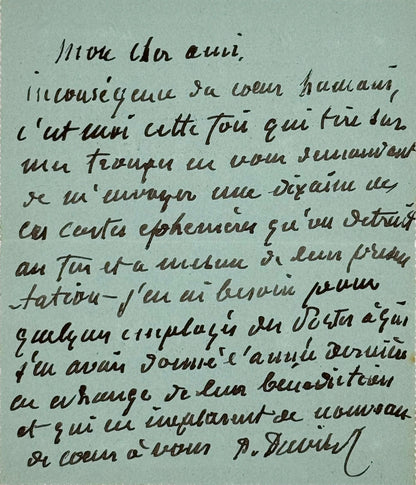 Mon cher ami,
inconséquence du cœur humain,
c'est moi cette fois qui tire sur
mes troupes en vous demandant
de m'envoyer une dixaine de
ces cartes ephemères qu'on detruit
au fur et a mesure de leur presen
tation - j'en ai besoin pour
quelques employés des Postes à qui
j'en avais donné l'année dernière
en echange de leur bénédiction
et qui en implorent de nouveau
de cœur à vous